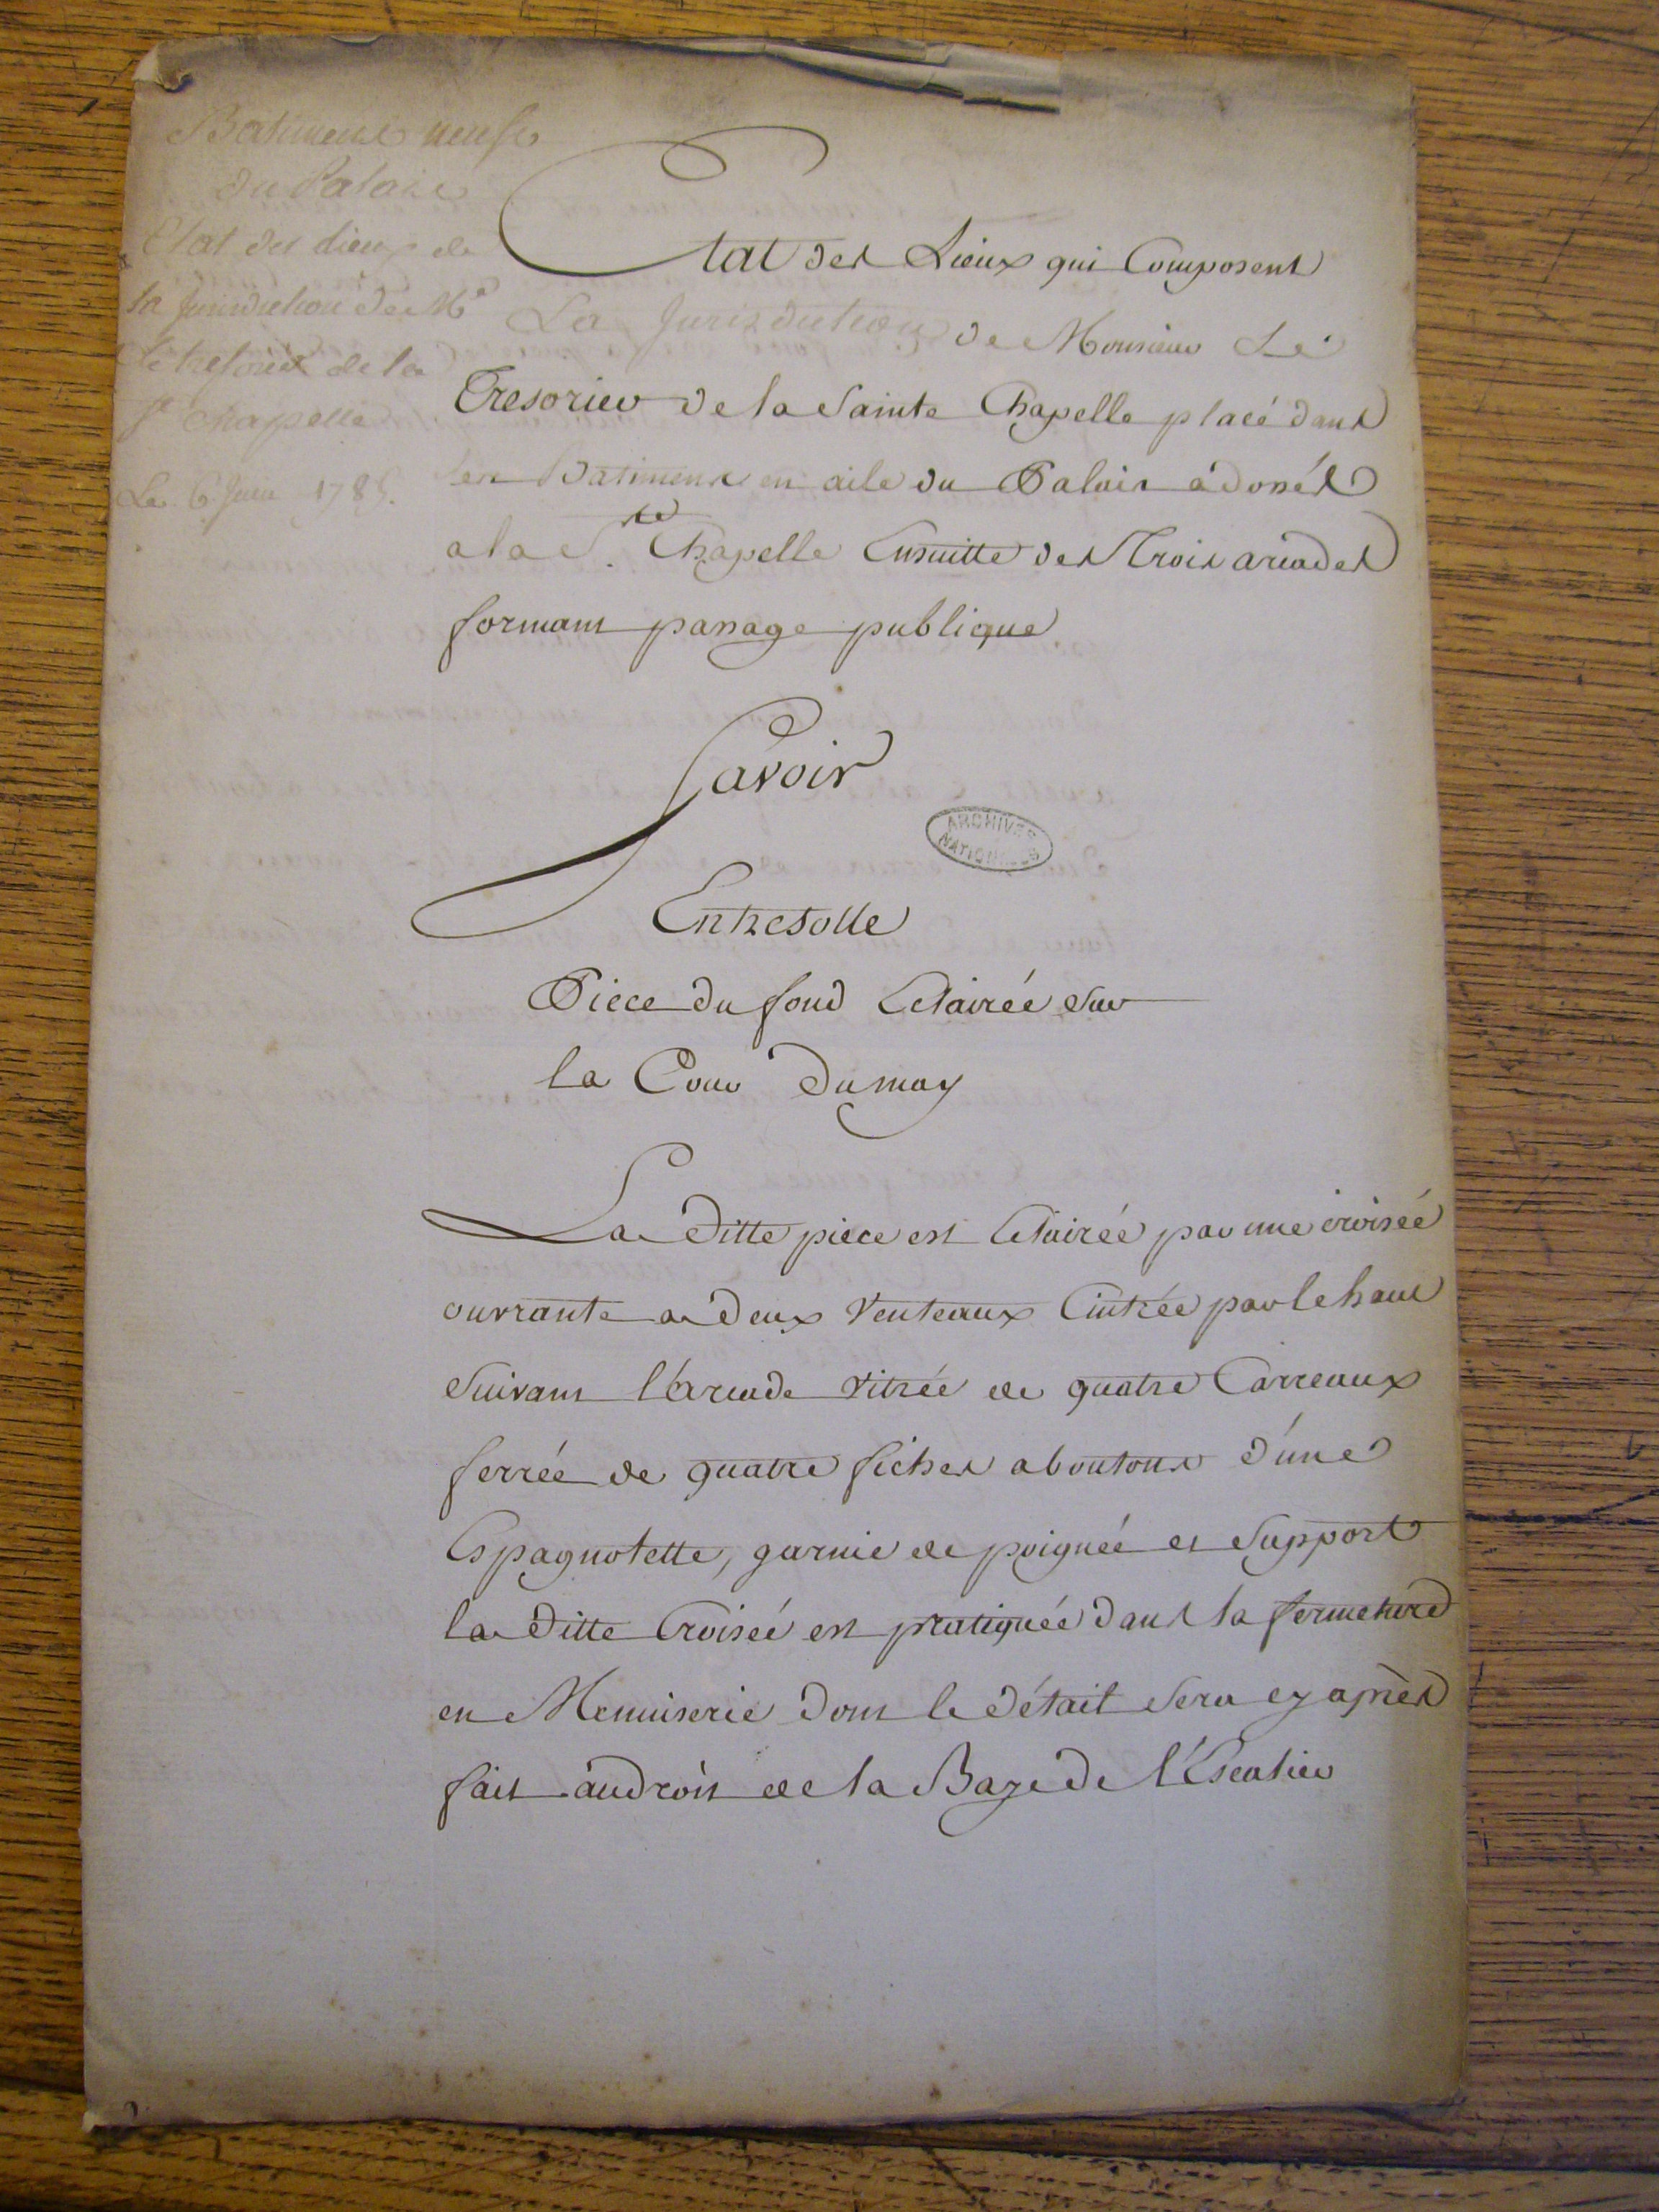 Batiment neuf
du Palais
Etat des lieux de
la Jurisdiction de Mr
le tresorier de la
Ste Chapelle
Le 6 Juin 1785.
Etat des Lieux qui Composent
La Jurisdiction de Monsieur Le
Tresorier de la Sainte Chapelle placé dans
les Batiment en aile du Palais adossés
a la Ste. Chapelle Ensuitte des Trois arcades
formant passage publique
Savoir
ARCHIVES NATIONALES
Entresolle
Piece du fond Eclairée sur
la Cour du may
La ditte piece est Eclairée par une croisée
ouvrante a deux Venteaux Cintrée par le haut
Suivant l'Arcade vitrée de quatre Carreaux
ferrée de quatre fiches a boutons d'une
Espagnolette, garnie de poignée et Support
la ditte Croisée est pratiquée dans la fermeture
en Menuiserie dont le détail sera cy après
fait au droit de la Baye de l'Escalier